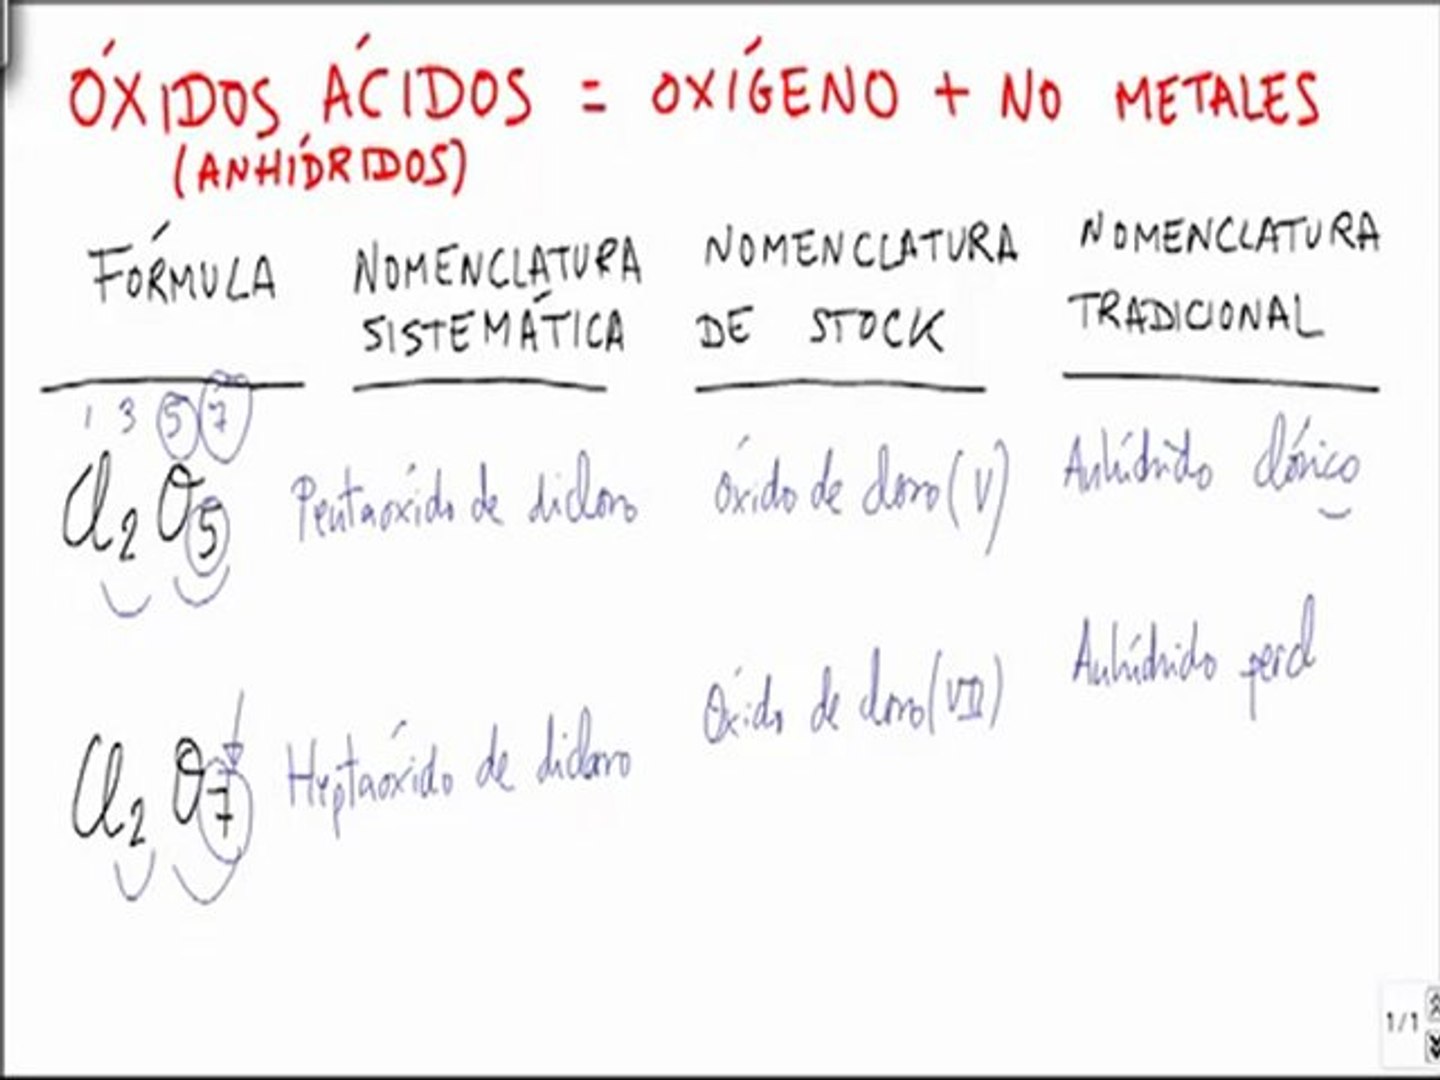 ÓXIDOS ÁCIDOS = OXÍGENO + NO METALES
(ANHÍDRIDOS)
FÓRMULA
NOMENCLATURA
SISTEMÁTICA
NOMENCLATURA
DE STOCK
NOMENCLATURA
TRADICIONAL
1 3 5 7
Cl2O5
Pentaóxido de dicloro
Óxido de cloro (V)
Anhídrido clórico
Cl2O7
Heptaóxido de dicloro
Óxido de cloro (VII)
Anhídrido percl
1/1